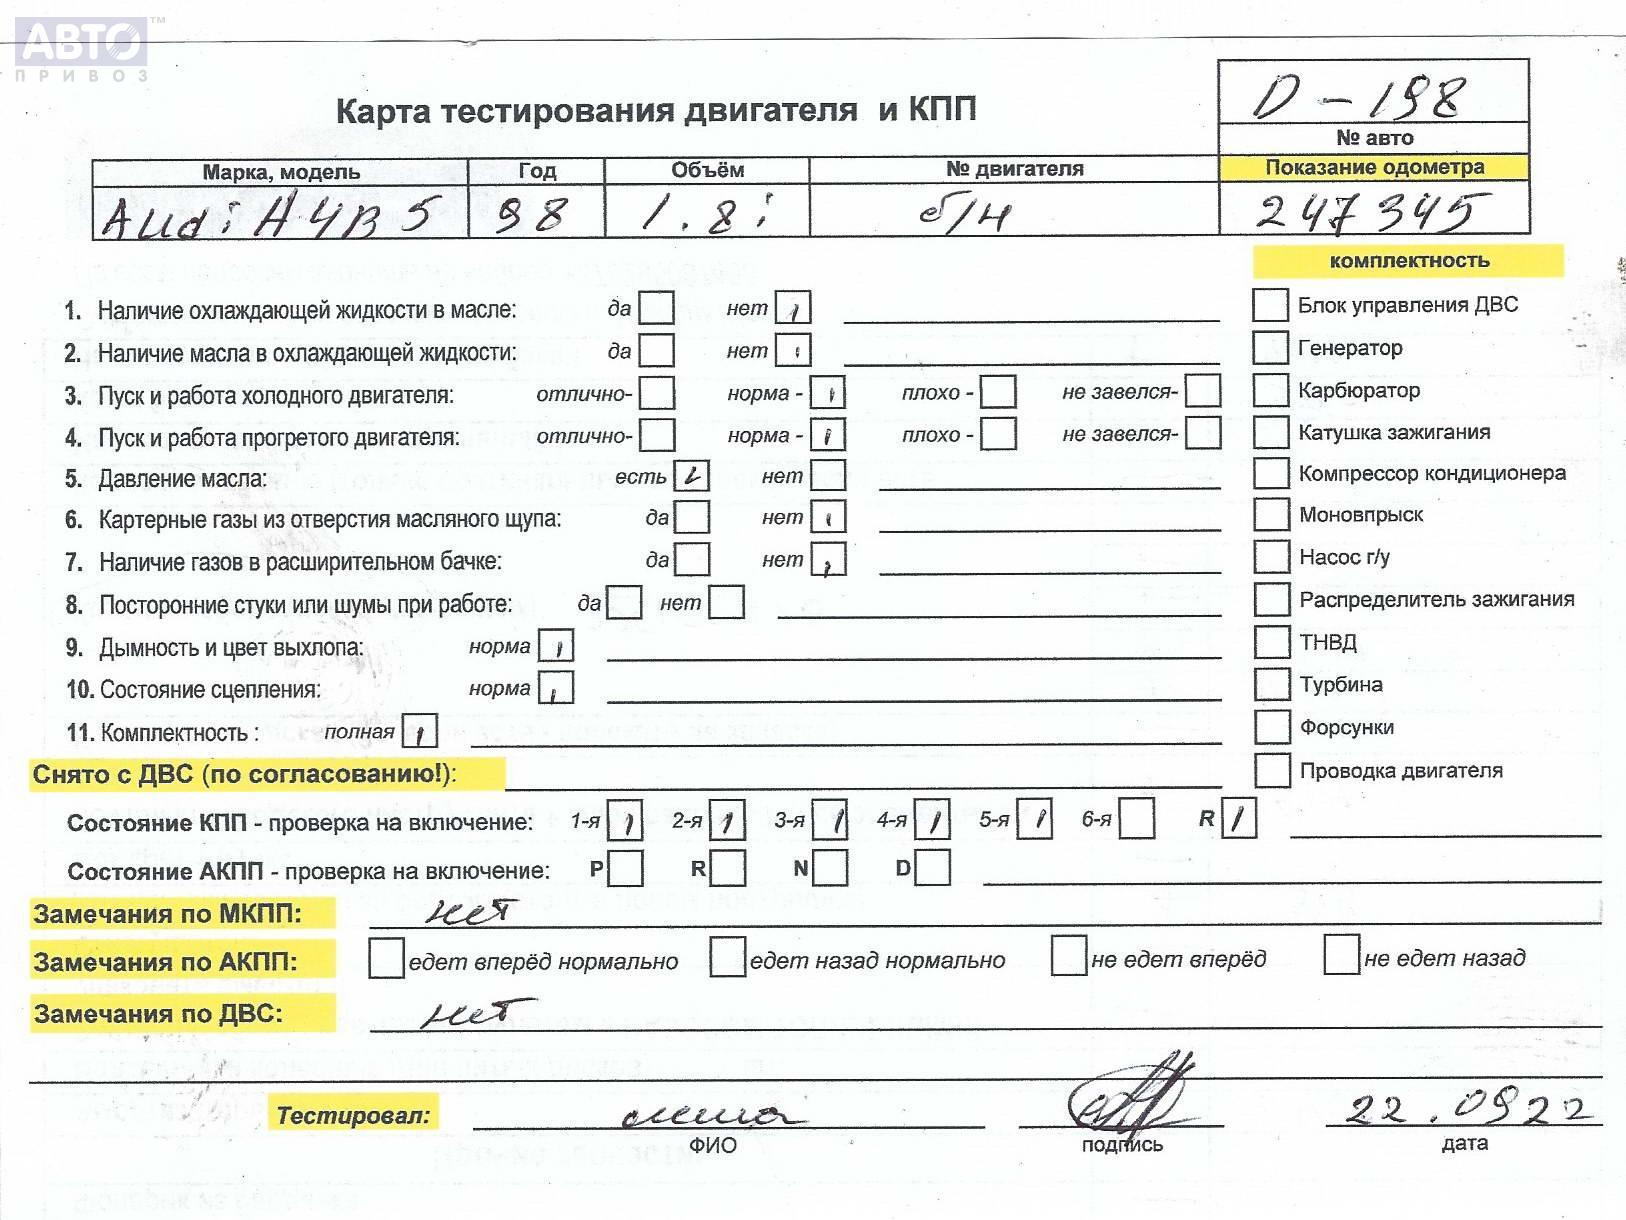 АВТО™
ПРИВОЗ
Карта тестирования двигателя и КПП
D-198
№ авто
Марка, модель Год Объём № двигателя Показание одометра
Audi A4B5 98 1.8i б/н 247345
комплектность
1. Наличие охлаждающей жидкости в масле: да нет Блок управления ДВС
2. Наличие масла в охлаждающей жидкости: да нет Генератор
3. Пуск и работа холодного двигателя: отлично- норма - плохо - не завелся- Карбюратор
4. Пуск и работа прогретого двигателя: отлично- норма - плохо - не завелся- Катушка зажигания
5. Давление масла: есть нет Компрессор кондиционера
6. Картерные газы из отверстия масляного щупа: да нет Моновпрыск
7. Наличие газов в расширительном бачке: да нет Насос г/у
8. Посторонние стуки или шумы при работе: да нет Распределитель зажигания
9. Дымность и цвет выхлопа: норма ТНВД
10. Состояние сцепления: норма Турбина
11. Комплектность : полная Форсунки
Снято с ДВС (по согласованию!): Проводка двигателя
Состояние КПП - проверка на включение: 1-я 2-я 3-я 4-я 5-я 6-я R
Состояние АКПП - проверка на включение: P R N D
Замечания по МКПП: нет
Замечания по АКПП: едет вперёд нормально едет назад нормально не едет вперёд не едет назад
Замечания по ДВС: нет
Тестировал: 22.0922
ФИО подпись дата